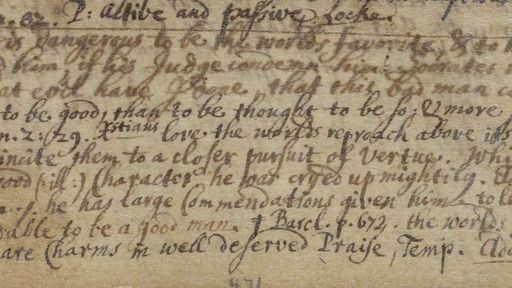 P: Active and passive Locke.
is dangerous to be the worlds favorite, & to
him if his Judge condemn him. Socrates
evil have I done, that this bad man
to be good, than to be thought to be so: & more
n. 2: 29. Xstians love the worlds reproach above its
incite them to a closer pursuit of Vertue. Whi
ood (ill:) Character he was cryed up mightily.
he has large Commendations given him to
rable to be a good man. † Barcl. p. 672. the world:
are Charms in well deserved Praise, Temp. Add